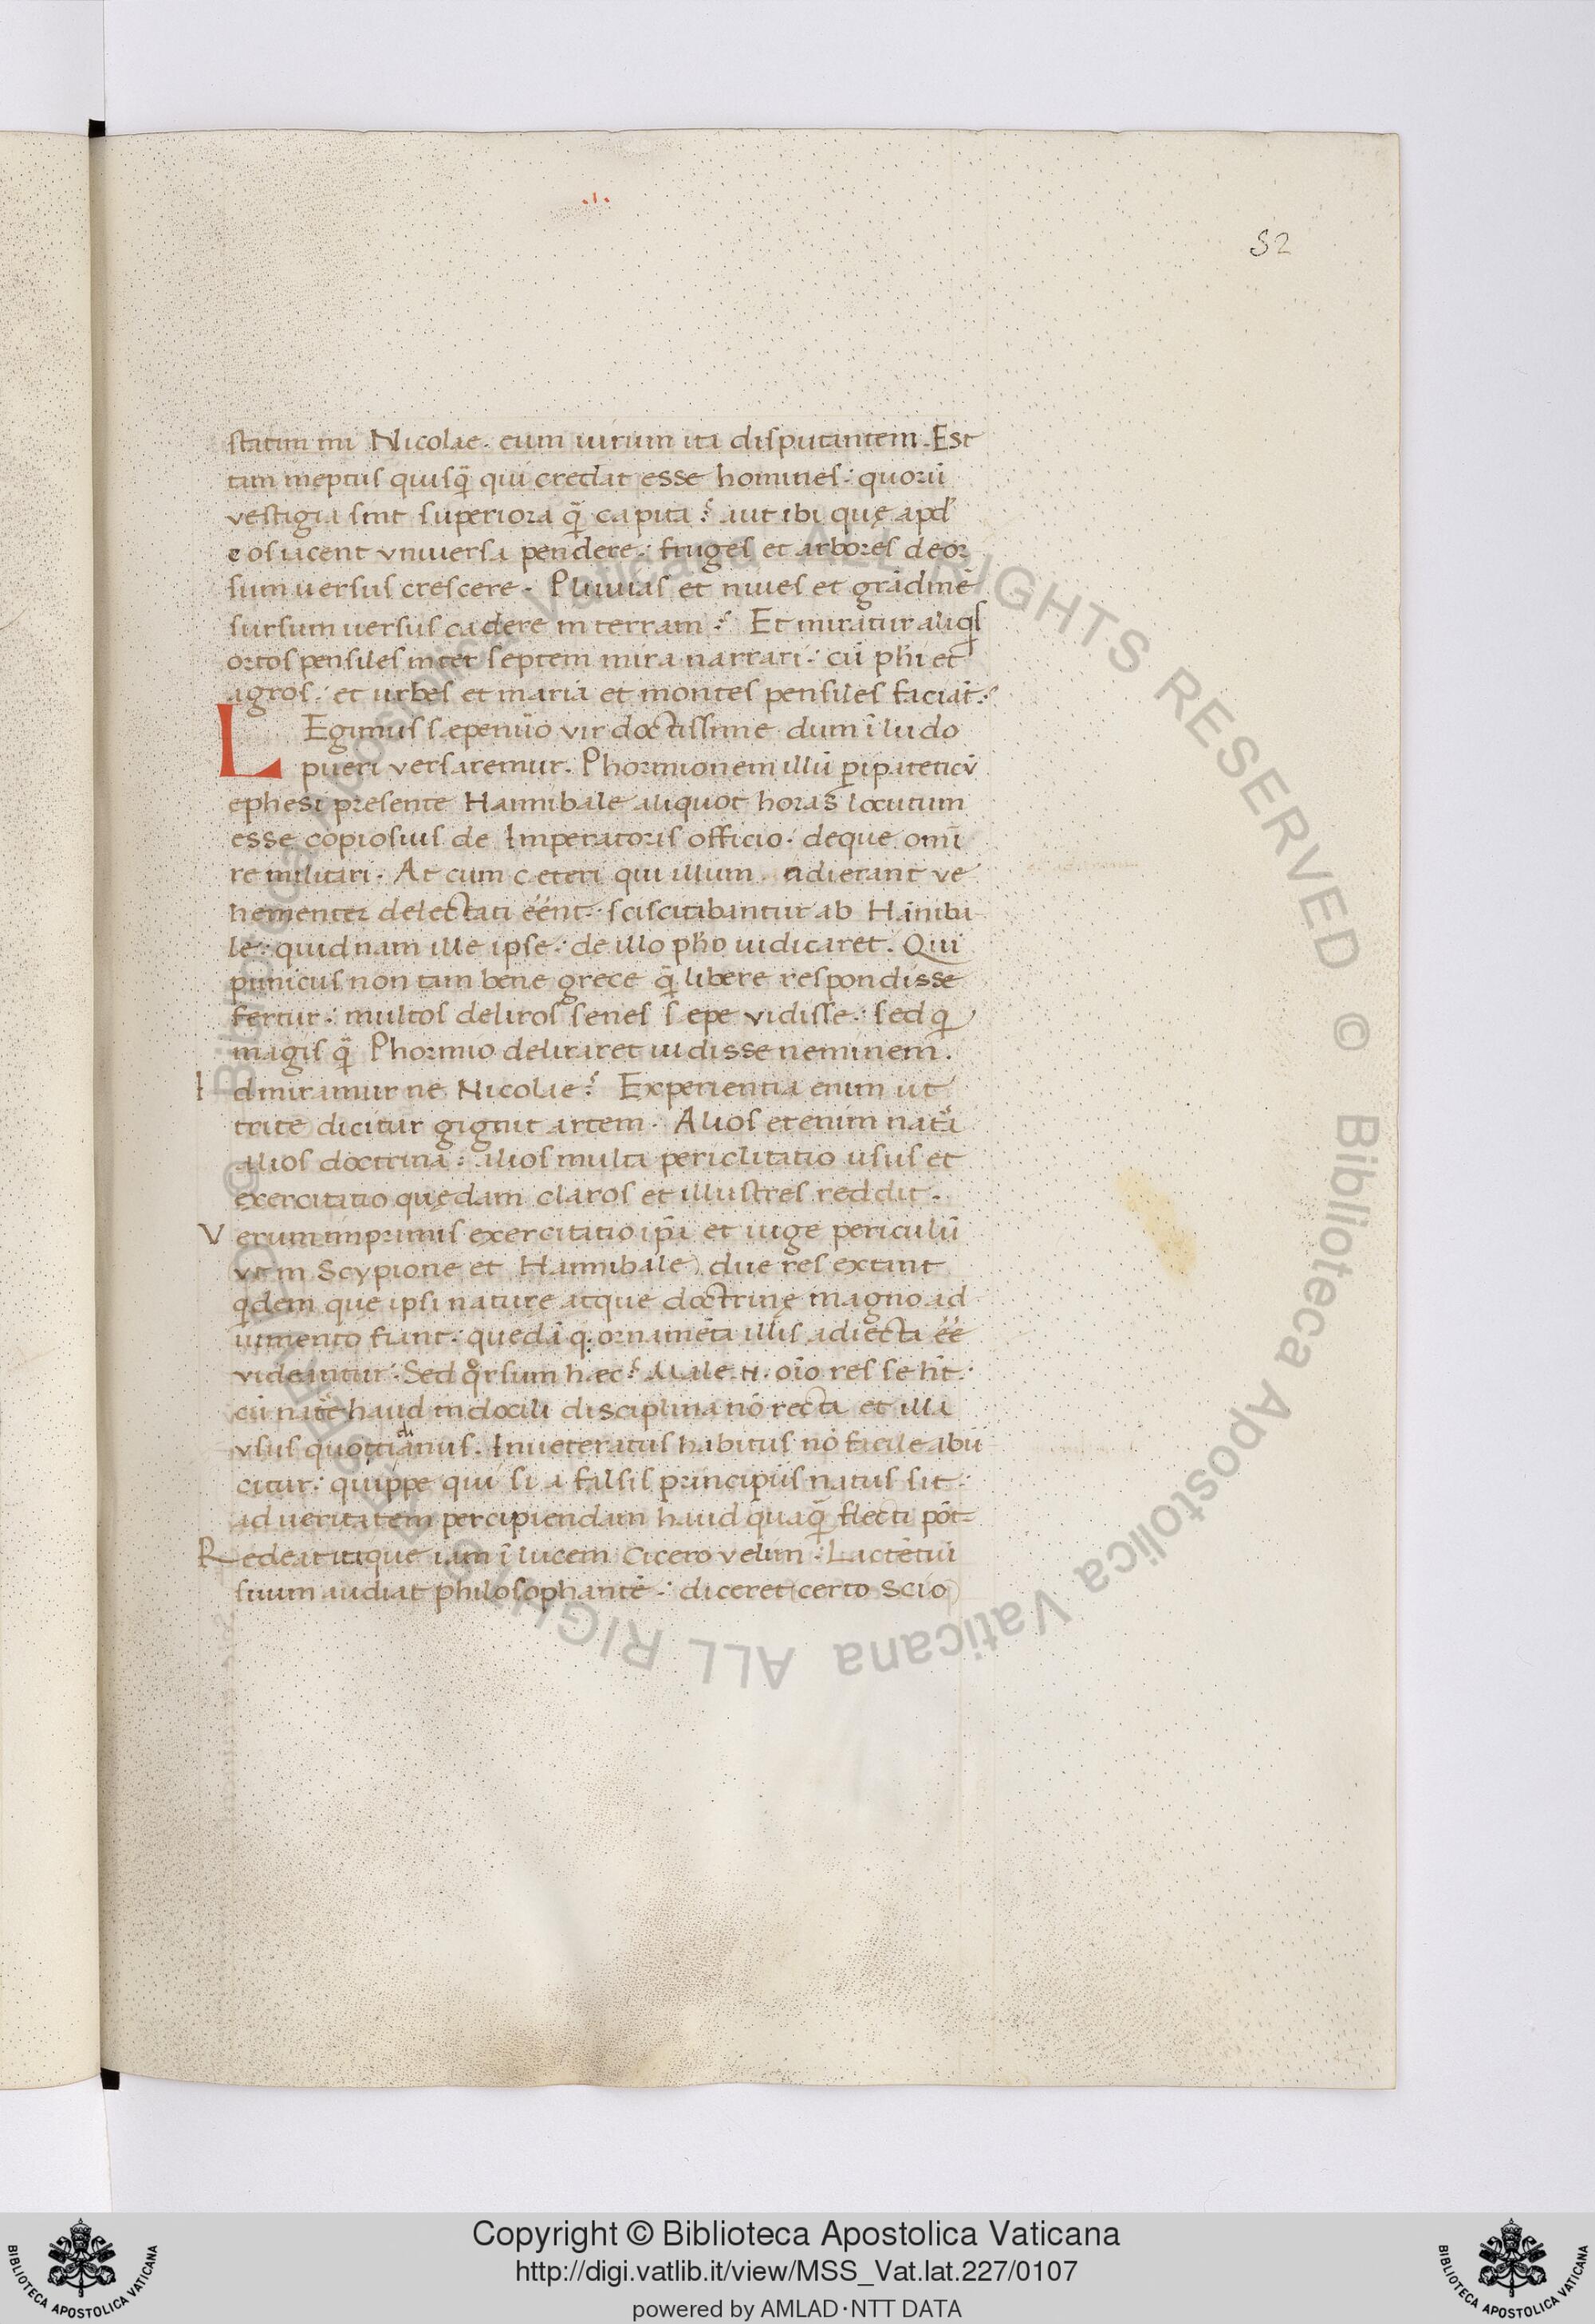 52
statim mi Nicolae. eum uirum ita disputantem. Est
tam ineptus quisq̃ qui credat esse homines: quorũ
vestigia sint superiora q̃ capita? aut ibi quę apd'
eos iacent vniuersa pendere: fruges et arbores deor
sum uersus crescere. Pluuias et niues et grãdinẽ
sursum uersus cadere in terram? Et miratur aliqs
ortos pensiles inter septem mira narrari: cũ phi et
agros: et urbes et maria et montes pensiles faciãt?
LEgimus sepenũo vir doctissime dum ĩ ludo
pueri versaremur. Phormionem illũ ꝑipateticũ
ephesi presente Hannibale aliquot horas locutum
esse copiosius de Imperatoris officio. deque omĩ
re militari. At cum ceteri qui illum audierant ve
hementer delectati eẽnt. sciscitabantur ab Hãniba
le: quid nam ille ipse: de illo pho iudicaret. Qui
punicus non tam bene grece q̃ libere respondisse
fertur: multos deliros senes sepe vidisse: sed q
magis q̃ Phormio deliraret uidisse neminem.
Id miramur ne Nicolae? Experientia enim ut
trite dicitur gignit artem. Alios etenim natã
alios doctrina: alios multa periclitatio usus et
exercitatio quędam claros et illustres reddit.
Verum imprimis exercitatio ip̃a et iuge periculũ
(vt in Scypione et Hannibale) due res extant
qdem que ipsi nature atque doctrinę magno ad
iumento fiant: quedã q; ornamẽta illis adiecta eẽ
videantur. Sed qrsum hec? Male .n. oĩo res se ht:
cũ natẽ haud indocili disciplina nõ recta et illa
vsus quottidianus. Inueteratus habitus nõ facile abii
citur: quippe qui si a falsis principiis natus sit:
ad ueritatem percipiendam haud quaq̃ flecti pot
Redeat itaque iam ĩ lucem Cicero velim: Lactẽtiũ
suum audiat philosophantẽ: diceret (certo scio)
Copyright © Biblioteca Apostolica Vaticana
http://digi.vatlib.it/view/MSS_Vat.lat.227/0107
powered by AMLAD·NTT DATA
BIBLIOTECA APOSTOLICA VATICANA
BIBLIOTECA APOSTOLICA VATICANA
© Biblioteca Apostolica Vaticana ALL RIGHTS RESERVED © Biblioteca Apostolica Vaticana ALL RIGHTS RESERVED